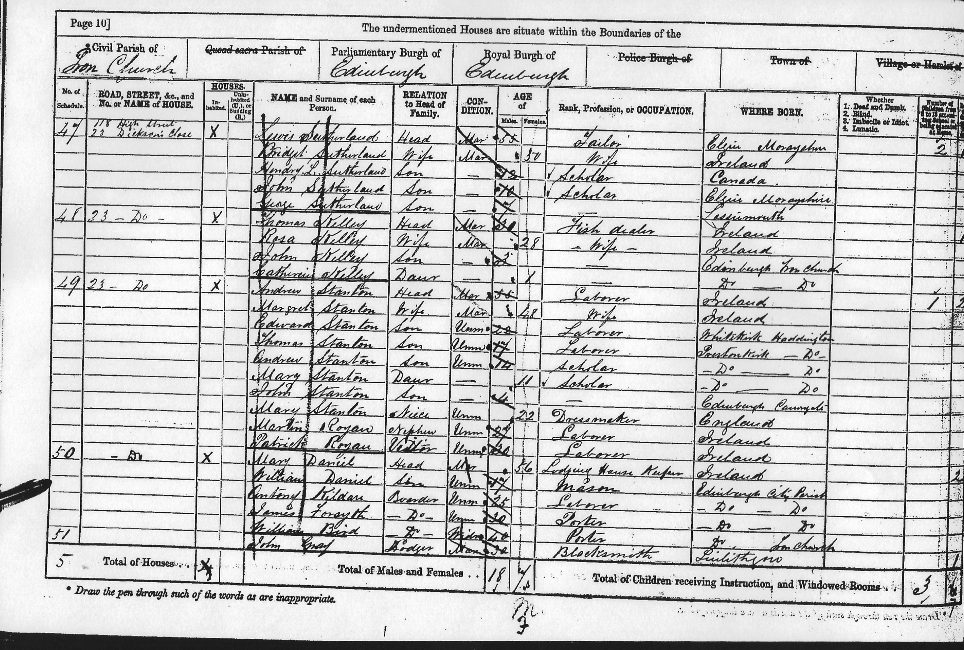 Page 10] The undermentioned Houses are situate within the Boundaries of the
Civil Parish of Quoad sacra Parish of Parliamentary Burgh of Royal Burgh of Police Burgh of Town of Village or Hamlet of
Tron Church Edinburgh Edinburgh
No. of Schedule. ROAD, STREET, &c., and No. or NAME of HOUSE. HOUSES. Inhabited. Uninhabited (U.), or Building (B.) NAME and Surname of each Person. RELATION to Head of Family. CONDITION. AGE of Males. Females. Rank, Profession, or OCCUPATION. WHERE BORN. Whether 1. Deaf and Dumb. 2. Blind. 3. Imbecile or Idiot. 4. Lunatic.
47 118 High Street
22 Dickson's Close X Lewis Sutherland Head Mar 55 Tailor Elgin Morayshire 2
Bridget Sutherland Wife Mar 50 Wife Ireland
Hendry Sutherland Son — 12 Scholar Canada
John Sutherland Son — 10 Scholar Elgin Morayshire
Sutherland Son —
48 23 — Do X Thomas Kelley Head Mar 30 Fish dealer Ireland
Rosa Kelley Wife Mar 28 — Wife — Ireland
John Kelley Son — Edinburgh Tron Church
Catherine Kelley Daur — 1 — Do — Do
49 23 — Do X Andrew Stanton Head Mar Laborer Ireland 1
Margret Stanton Wife Mar 48 Wife Ireland
Edward Stanton Son Unm 20 Laborer Whitekirk Haddington
Thomas Stanton Son Unm 17 Laborer Prestonkirk — Do —
Andrew Stanton Son Unm 14 Scholar — Do — Do
Mary Stanton Daur — 11 Scholar — Do — Do
John Stanton Son — 4 — Edinburgh Canongate
Mary Stanton Niece Unm 22 Dressmaker England
Martin Rogan Nephew Unm Laborer Ireland
Patrick Rogan Visitor Unm 20 Laborer Ireland
50 — Do X Mary Daniel Head Mar 56 Lodging House Keeper Ireland 2
William Daniel Son Unm 17 Mason Edinburgh City Parish
Antony Kildare Boarder Unm 25 Laborer — Do — Do
James Forsyth — Do — Unm 30 Porter — Do — Do
51 William Bird Do Widr 40 Porter Do Tron Church
John Gray Lodger Mar Blacksmith Linlithgow 1
5 Total of Houses Total of Males and Females 18 7 Total of Children receiving Instruction, and Windowed Rooms 3
* Draw the pen through such of the words as are inappropriate.